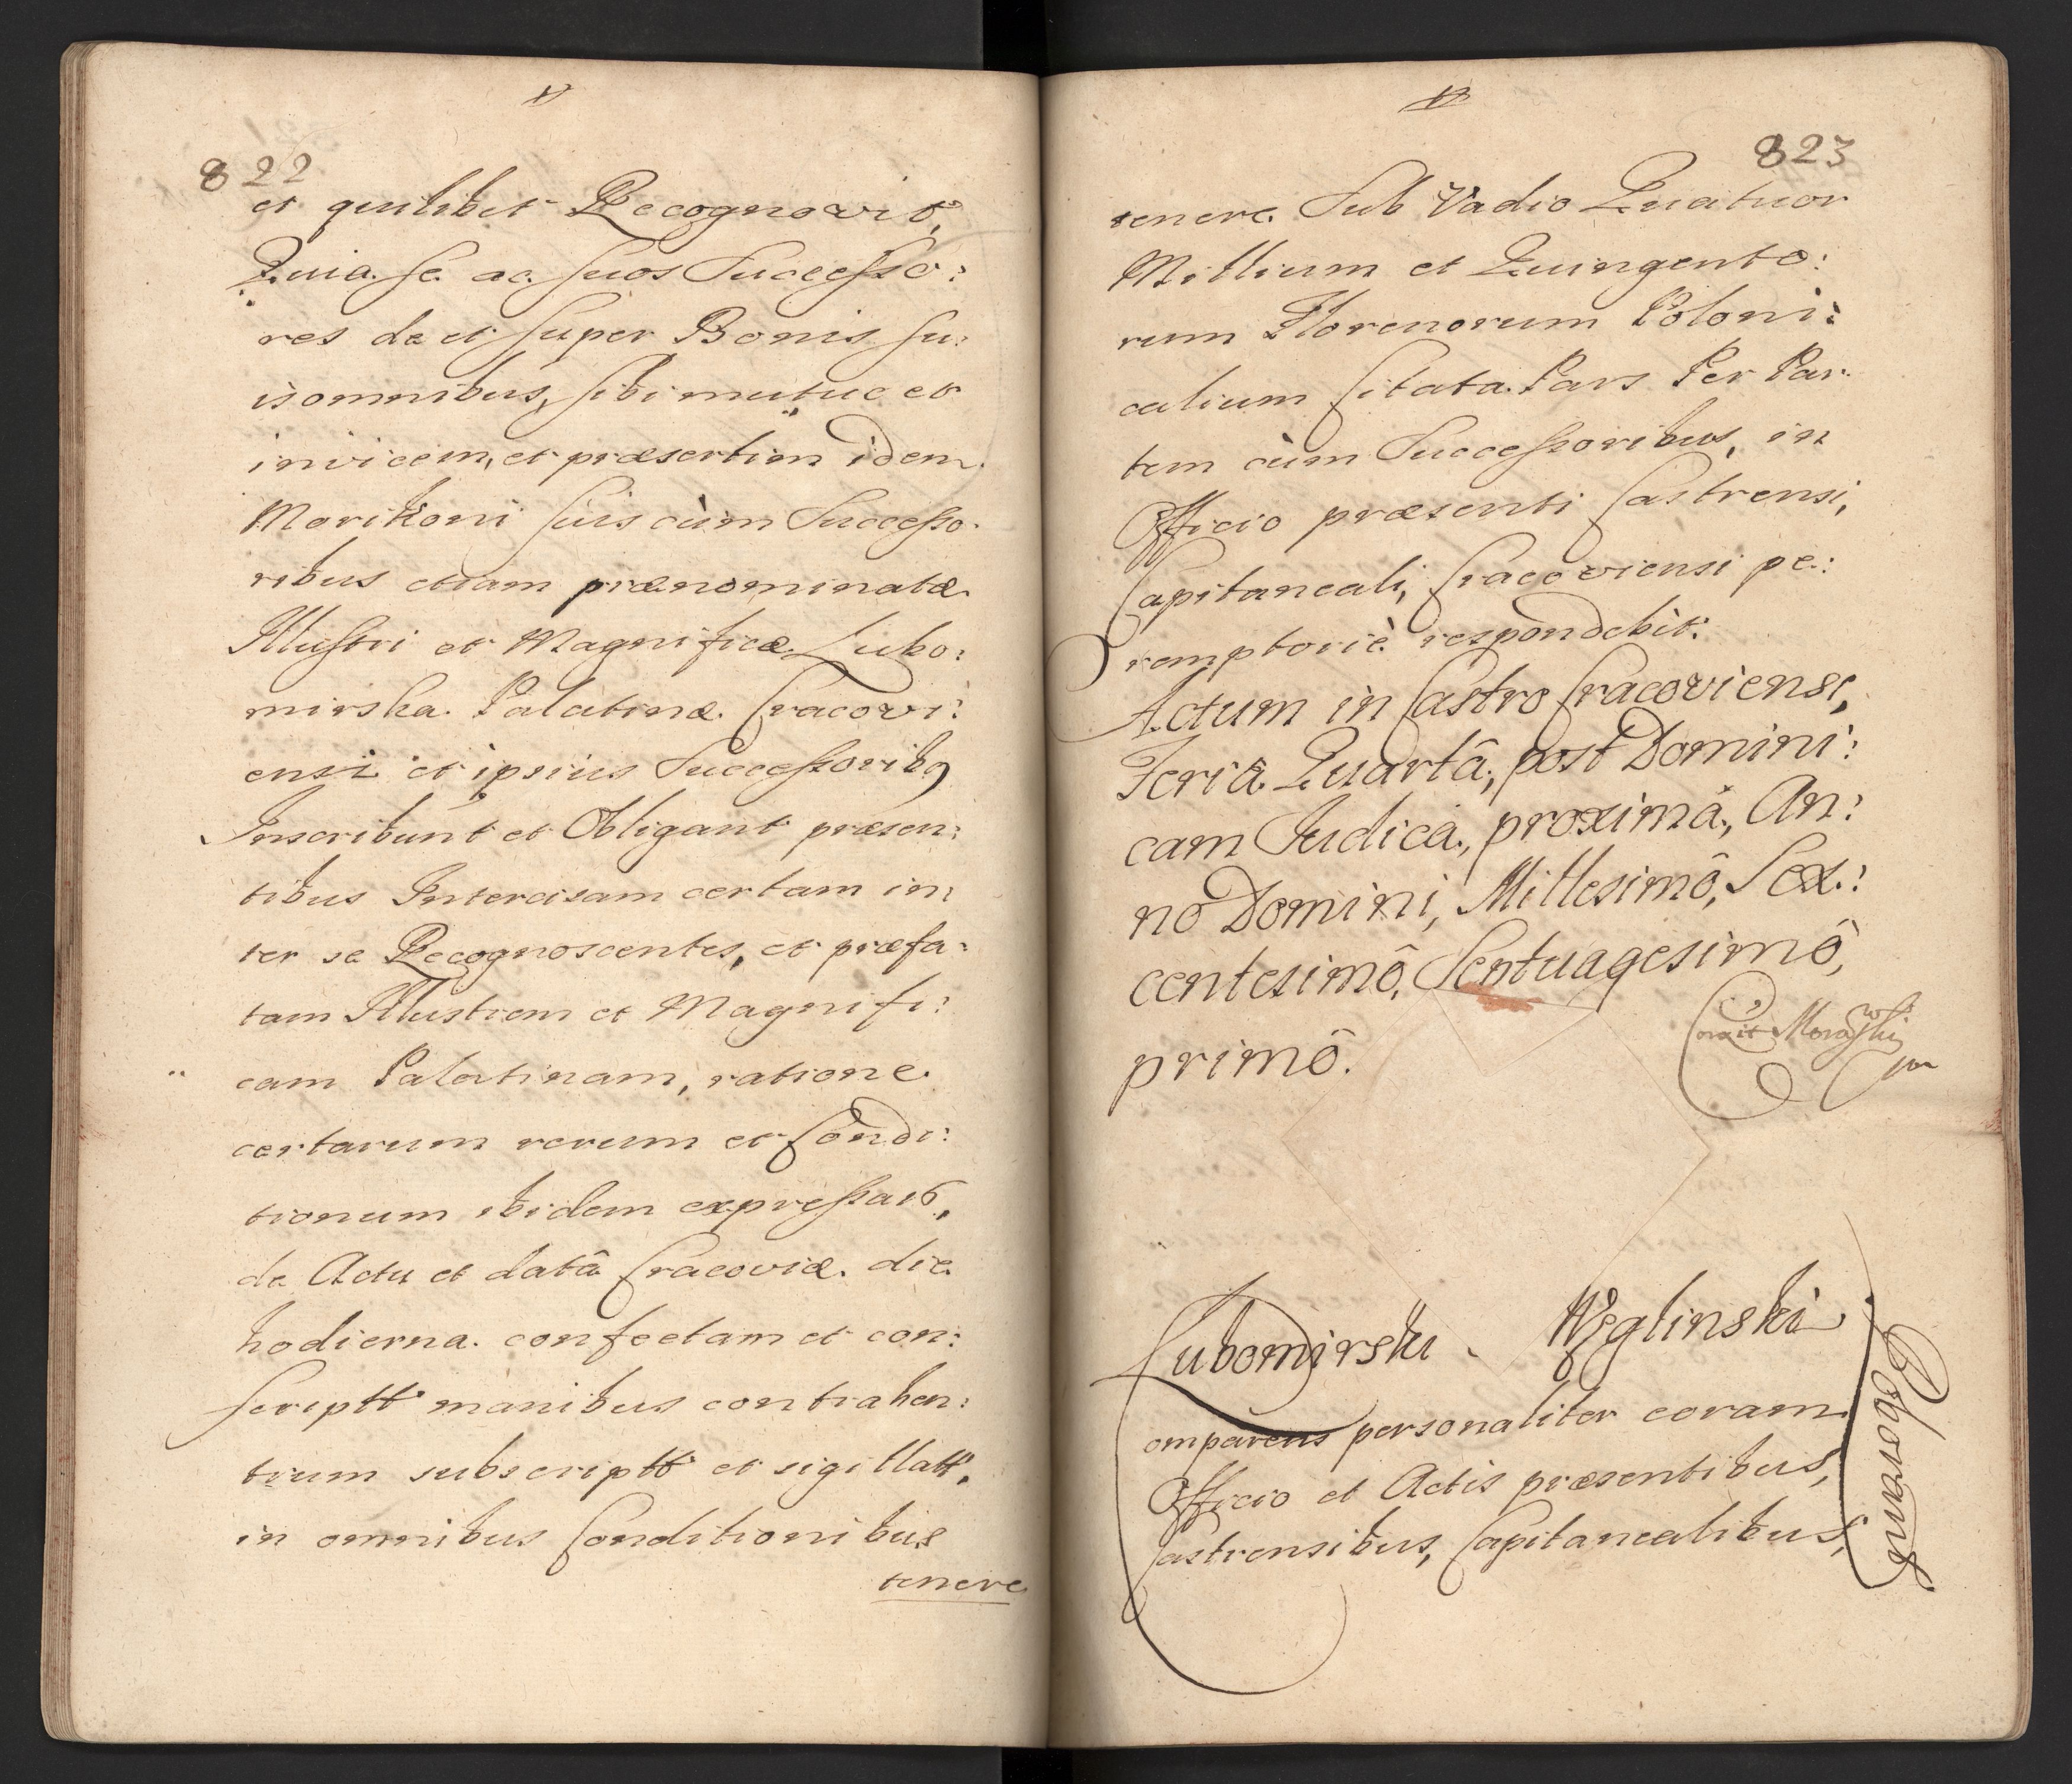 822
et quilibet Recognovit,
Quia se ac suos Successo:
res de et super Bonis su:
is omnibus, sibi mutuo et
invicem, et præsertim idem
Morikoni suis cùm Successo-
ribus etiam prænominatæ
Illustri et Magnificæ Lubo:
mirska Palatinæ Cracovi:
ensi et ipsius Successoribq
Inscribunt et Obligant præsen:
tibus Intercisam certam in:
ter se Recognoscentes, et præfa:
tam Illustrem et Magnifi:
cam Palatinam, ratione
certarum rerum et Condi:
tionum ibidem expressar,
de Actu et datâ Cracoviæ die
hodierna confectam et con:
scriptt manibus contrahen:
tium subscriptt et sigillatt,
in omnibus Conditionibus
tenere
823
tenere Sub Vadio Quatuor
Millium et Quingento:
rum Florenorum Poloni:
calium Citata Pars Per Par
tem cùm Successoribus, in
Officio præsenti Castrensi,
Capitaneali, Cracoviensi pe:
remptoriè respondebit:
Actum in Castro Cracoviense,
Feriâ Quartâ, post Domini:
cam Judica, proximâ, An:
no Domini, Millesimô, Sex:
centesimô, Septuagesimô,
primô.
Lubomirski Węglinski
omparens personaliter coram
Officio et Actis præsentibus,
Castrensibus, Capitanealibus,
Roborand